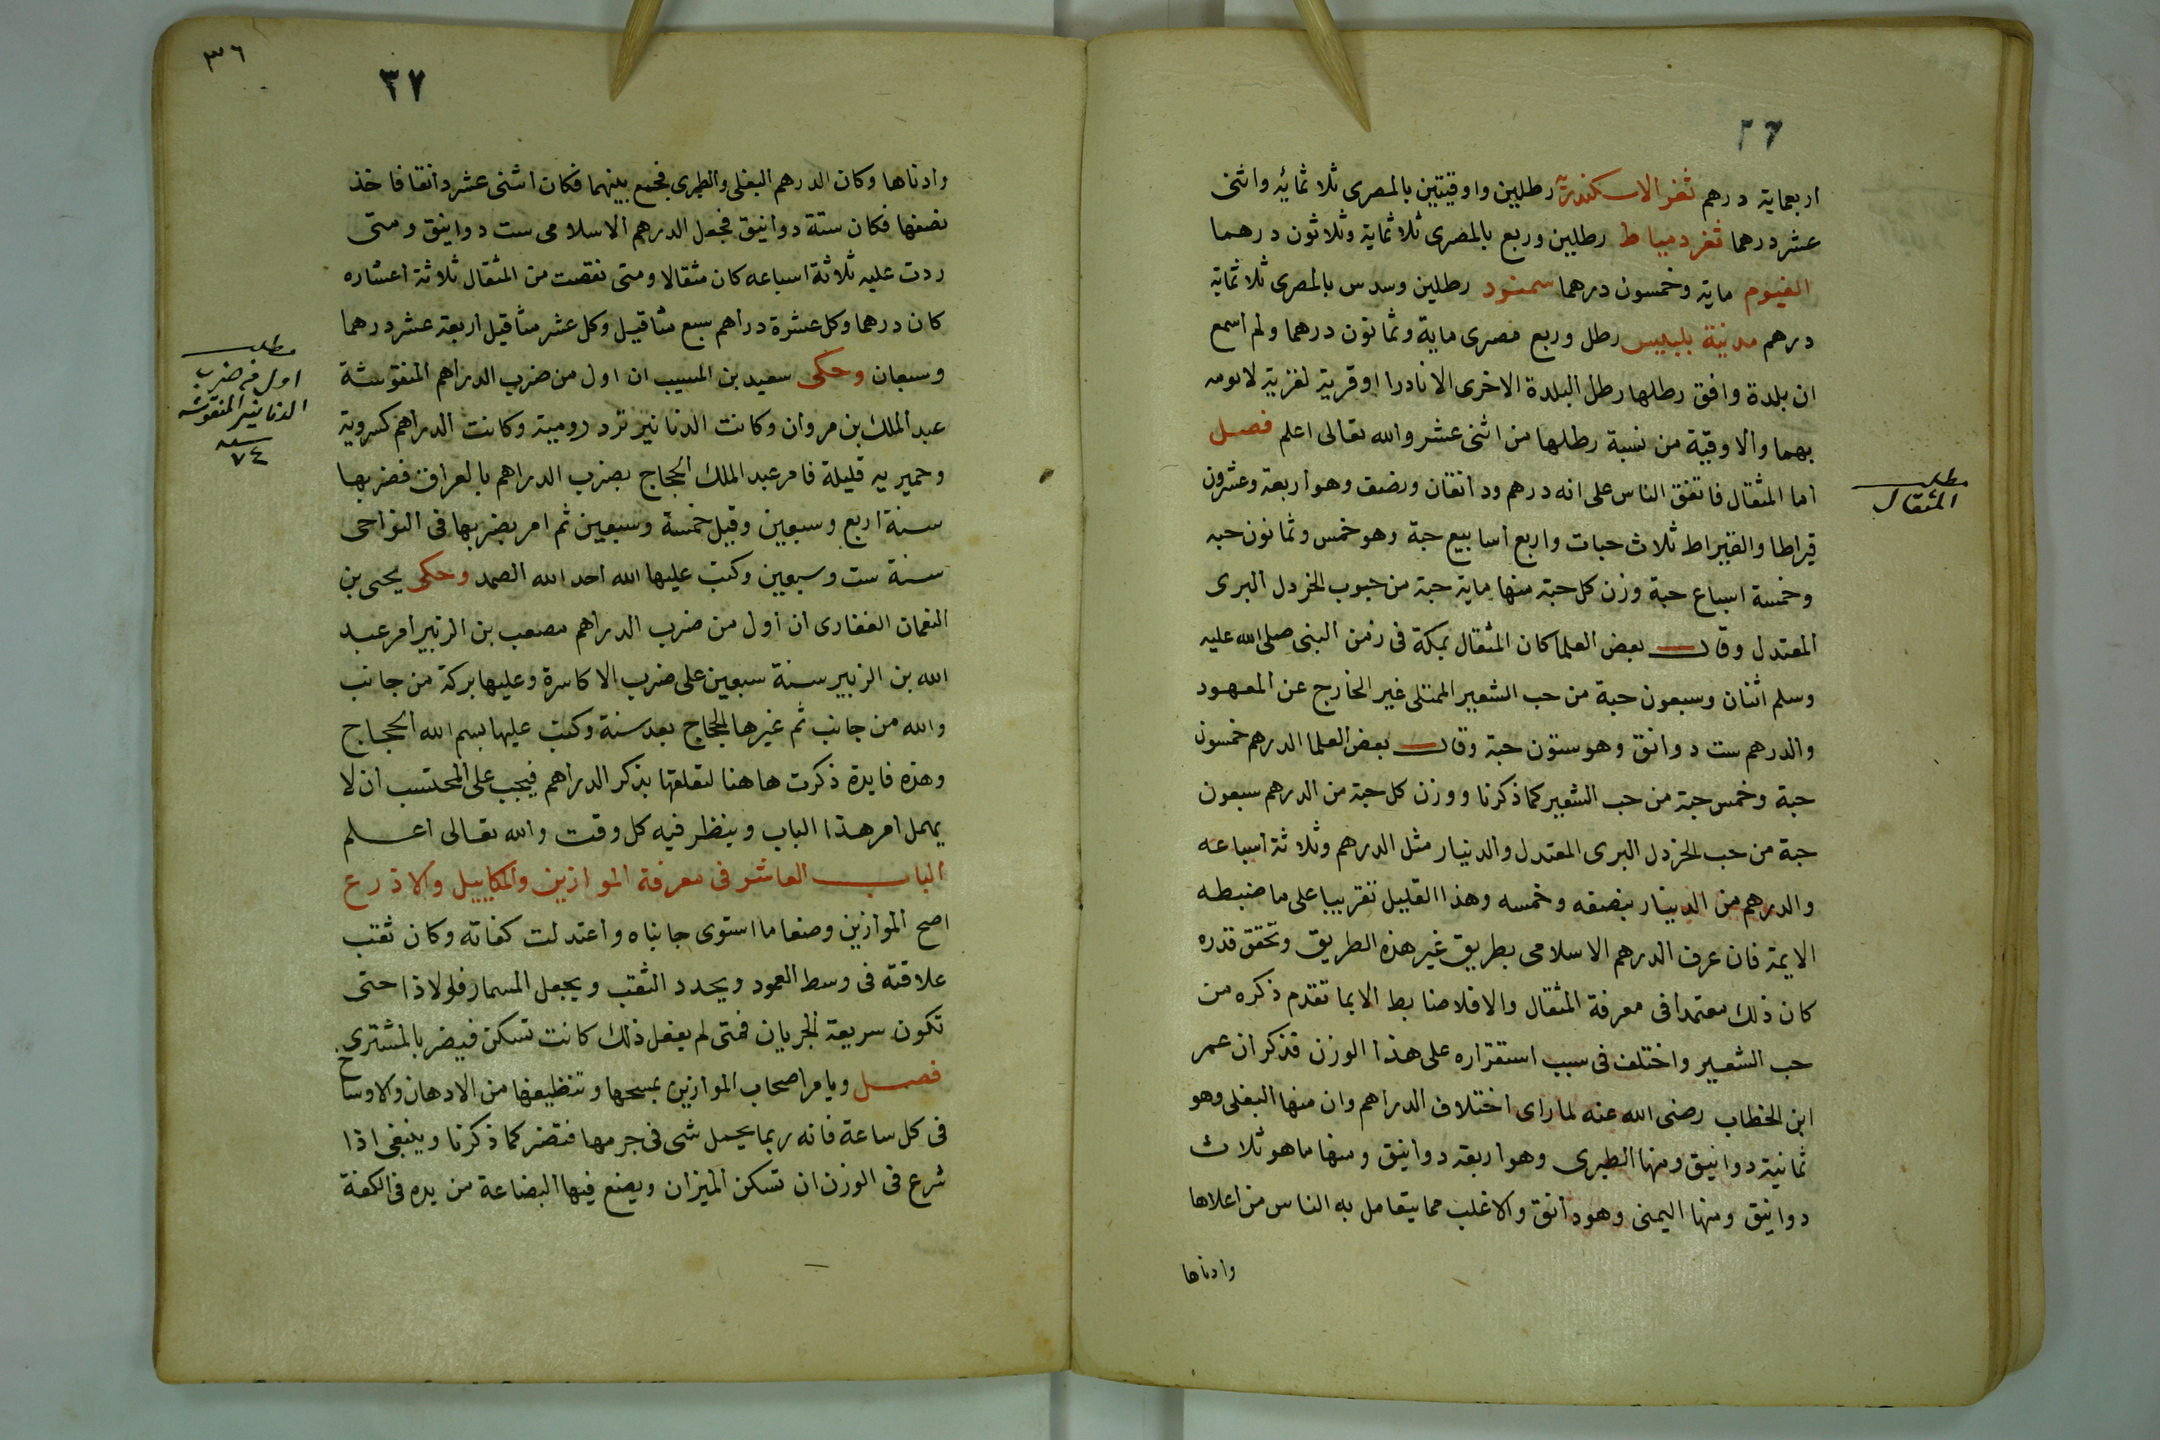 ٢٦
اربعماية درهم ثغر الاسكندرية رطلين واوقيتين بالمصرى ثلاثمائه واثنى
عشر درهما ثغر دمياط رطلين وربع بالمصرى ثلاثماية وثلاثون درهما
الفيوم ماية وخمسون درهما سمنود رطلين وسدس بالمصرى ثلاثماية
درهم مدينة بلبيس رطل وربع مصرى ماية وثمانون درهما ولم اسمع
ان بلدة وافق رطلها رطل البلدة الاخرى الا نادرا او قرية لغزية
بهما والاوقية من نسبة رطلها من اثنى عشر والله تعالى اعلم فصل
اما المثقال فاتفق الناس على انه درهم ودانقان ونصف وهو اربعة وعشرون
قيراطا والقيراط ثلاث حبات واربع اسابيع حبة وهو خمس وثمانون حبه
وخمسة اسباع حبة وزن كل حبة منها ماية حبة من حبوب الخردل البرى
المعتدل وقال بعض العلما كان المثقال بمكة فى زمن النبى صلى الله عليه
وسلم اثنان وسبعون حبة من حب الشعير الممتلى غير الخارج عن المعهود
والدرهم ست دوانق وهو ستون حبة وقال بعض العلما الدرهم خمسون
حبة وخمس حبة من حب الشعير كما ذكرنا ووزن كل حبة من الدرهم سبعون
حبة من حب الخردل البرى المعتدل والدينار مثل الدرهم وثلاثة اسباعه
والدرهم من الدينار بنصفه وخمسه وهذا القليل تقريبا على ما ضبطه
الايمة فان عرف الدرهم الاسلامى بطريق غير هذه الطريق وتحقق قدره
كان ذلك معتمدا فى معرفة المثقال والا فلا ضابط الا بما تقدم ذكره من
حب الشعير واختلف فى سبب استقراره على هذا الوزن فذكر ان عمر
ابن الخطاب رضى الله عنه لما راى اختلاف الدراهم وان منها البغلى وهو
ثمانية دوانيق ومنها الطبرى وهو اربعة دوانيق ومنها ما هو ثلاث
دوانيق ومنها اليمنى وهو دانق والاغلب مما يتعامل به الناس من اعلاها
وادناها
مطلب
المثقال
٣٦
٢٧
وادناها وكان الدرهم البغلى والطبرى فجمع بينهما فكان اثنى عشر دانقا فاخذ
نصفها فكان ستة دوانيق فجعل الدرهم الاسلامى ست دوانيق ومتى
ردت عليه ثلاثة اسباعه كان مثقالا ومتى نقصت من المثقال ثلاثة اعشاره
كان درهما وكل عشرة دراهم سبع مثاقيل وكل عشر مثاقيل اربعة عشر درهما
وسبعان وحكى سعيد بن المسيب ان اول من ضرب الدراهم المنقوشة
عبد الملك بن مروان وكانت الدنانير ترد رومية وكانت الدراهم كسروية
وحميريه قليلة فامر عبد الملك الحجاج بضرب الدراهم بالعراق فضربها
سنة اربع وسبعين وقيل خمسة وسبعين ثم امر بضربها فى النواحى
سنة ست وسبعين وكتب عليها الله احد الله الصمد وحكى يحيى بن
النعمان الغفارى ان اول من ضرب الدراهم مصعب بن الزبير امر عبد
الله بن الزبير سنة سبعين على ضرب الاكاسرة وعليها بركة من جانب
والله من جانب ثم غيرها الحجاج بعد سنة وكتب عليها بسم الله الحجاج
وهذه فايدة ذكرت هاهنا لتعلقها بذكر الدراهم فيجب على المحتسب ان لا
يهمل امر هذا الباب وينظر فيه كل وقت والله تعالى اعلم
الباب العاشر فى معرفة الموازين والمكاييل والاذرع
اصح الموازين وضعا ما استوى جانباه واعتدلت كفاته وكان ثقب
علاقته فى وسط العمود ويحدد الثقب ويجعل المسمار فولاذا حتى
تكون سريعة الجريان فمتى لم يفعل ذلك كانت تسكن فيضر بالمشترى
فصل ويامر اصحاب الموازين بمسحها وتنظيفها من الادهان والاوساخ
فى كل ساعة فانه ربما يحمل شى فى جرمها فتضر كما ذكرنا وينبغى اذا
شرع فى الوزن ان تسكن الميزان ويضع فيها البضاعة من يده فى الكفة
مطلب
اول من ضرب
الدنانير المنقوشه
سنه
٧٤